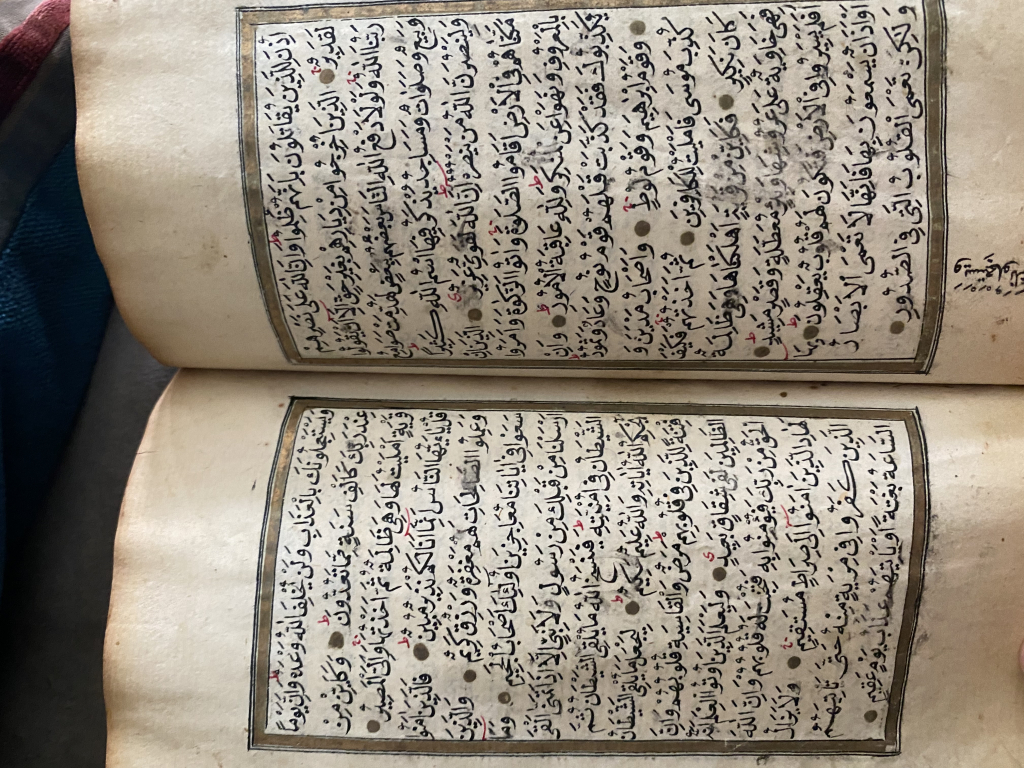 اُذِنَ لِلَّذِينَ يُقَاتَلُونَ بِاَنَّهُمْ ظُلِمُوا وَاِنَّ اللّٰهَ عَلٰى نَصْرِهِمْ
لَقَدِيرٌ الَّذِينَ اُخْرِجُوا مِنْ دِيَارِهِمْ بِغَيْرِ حَقٍّ اِلَّا اَنْ يَقُولُوا
رَبُّنَا اللّٰهُ وَلَوْلَا دَفْعُ اللّٰهِ النَّاسَ بَعْضَهُمْ بِبَعْضٍ لَهُدِّمَتْ صَوَامِعُ
وَبِيَعٌ وَصَلَوَاتٌ وَمَسَاجِدُ يُذْكَرُ فِيهَا اسْمُ اللّٰهِ كَثِيرًا
وَلَيَنْصُرَنَّ اللّٰهُ مَنْ يَنْصُرُهُ اِنَّ اللّٰهَ لَقَوِيٌّ عَزِيزٌ اَلَّذِينَ اِنْ
مَكَّنَّاهُمْ فِي الْاَرْضِ اَقَامُوا الصَّلٰوةَ وَاٰتَوُا الزَّكٰوةَ وَاَمَرُوا
بِالْمَعْرُوفِ وَنَهَوْا عَنِ الْمُنْكَرِ وَلِلّٰهِ عَاقِبَةُ الْاُمُورِ وَاِنْ
يُكَذِّبُوكَ فَقَدْ كَذَّبَتْ قَبْلَهُمْ قَوْمُ نُوحٍ وَعَادٌ وَثَمُودُ
وَقَوْمُ اِبْرٰهِيمَ وَقَوْمُ لُوطٍ وَاَصْحَابُ مَدْيَنَ وَ
كُذِّبَ مُوسٰى فَاَمْلَيْتُ لِلْكَافِرِينَ ثُمَّ اَخَذْتُهُمْ فَكَيْفَ
كَانَ نَكِيرِ فَكَاَيِّنْ مِنْ قَرْيَةٍ اَهْلَكْنَاهَا وَهِيَ ظَالِمَةٌ
فَهِيَ خَاوِيَةٌ عَلٰى عُرُوشِهَا وَبِئْرٍ مُعَطَّلَةٍ وَقَصْرٍ مَشِيدٍ
اَفَلَمْ يَسِيرُوا فِي الْاَرْضِ فَتَكُونَ لَهُمْ قُلُوبٌ يَعْقِلُونَ بِهَا
اَوْ اٰذَانٌ يَسْمَعُونَ بِهَا فَاِنَّهَا لَا تَعْمَى الْاَبْصَارُ
وَلٰكِنْ تَعْمَى الْقُلُوبُ الَّتِي فِي الصُّدُورِ
وَيَسْتَعْجِلُونَكَ
وَيَسْتَعْجِلُونَكَ بِالْعَذَابِ وَلَنْ يُخْلِفَ اللّٰهُ وَعْدَهُ وَاِنَّ يَوْمًا
عِنْدَ رَبِّكَ كَاَلْفِ سَنَةٍ مِمَّا تَعُدُّونَ وَكَاَيِّنْ مِنْ
قَرْيَةٍ اَمْلَيْتُ لَهَا وَهِيَ ظَالِمَةٌ ثُمَّ اَخَذْتُهَا وَاِلَيَّ الْمَصِيرُ
قُلْ يَا اَيُّهَا النَّاسُ اِنَّمَا اَنَا لَكُمْ نَذِيرٌ مُبِينٌ فَالَّذِينَ اٰمَنُوا
وَعَمِلُوا الصَّالِحَاتِ لَهُمْ مَغْفِرَةٌ وَرِزْقٌ كَرِيمٌ وَالَّذِينَ
سَعَوْا فِي اٰيَاتِنَا مُعَاجِزِينَ اُولٰئِكَ اَصْحَابُ الْجَحِيمِ وَمَا
اَرْسَلْنَا مِنْ قَبْلِكَ مِنْ رَسُولٍ وَلَا نَبِيٍّ اِلَّا اِذَا تَمَنّٰى اَلْقَى
الشَّيْطَانُ فِي اُمْنِيَّتِهِ فَيَنْسَخُ اللّٰهُ مَا يُلْقِي الشَّيْطَانُ ثُمَّ
يُحْكِمُ اللّٰهُ اٰيَاتِهِ وَاللّٰهُ عَلِيمٌ حَكِيمٌ لِيَجْعَلَ مَا يُلْقِي الشَّيْطَانُ
فِتْنَةً لِلَّذِينَ فِي قُلُوبِهِمْ مَرَضٌ وَالْقَاسِيَةِ قُلُوبُهُمْ وَاِنَّ
الظَّالِمِينَ لَفِي شِقَاقٍ بَعِيدٍ وَلِيَعْلَمَ الَّذِينَ اُوتُوا الْعِلْمَ اَنَّهُ
الْحَقُّ مِنْ رَبِّكَ فَيُؤْمِنُوا بِهِ فَتُخْبِتَ لَهُ قُلُوبُهُمْ وَاِنَّ اللّٰهَ
لَهَادِ الَّذِينَ اٰمَنُوا اِلٰى صِرَاطٍ مُسْتَقِيمٍ وَلَا يَزَالُ
الَّذِينَ كَفَرُوا فِي مِرْيَةٍ مِنْهُ حَتّٰى تَاْتِيَهُمُ
السَّاعَةُ بَغْتَةً اَوْ يَاْتِيَهُمْ عَذَابُ يَوْمٍ عَقِيمٍ